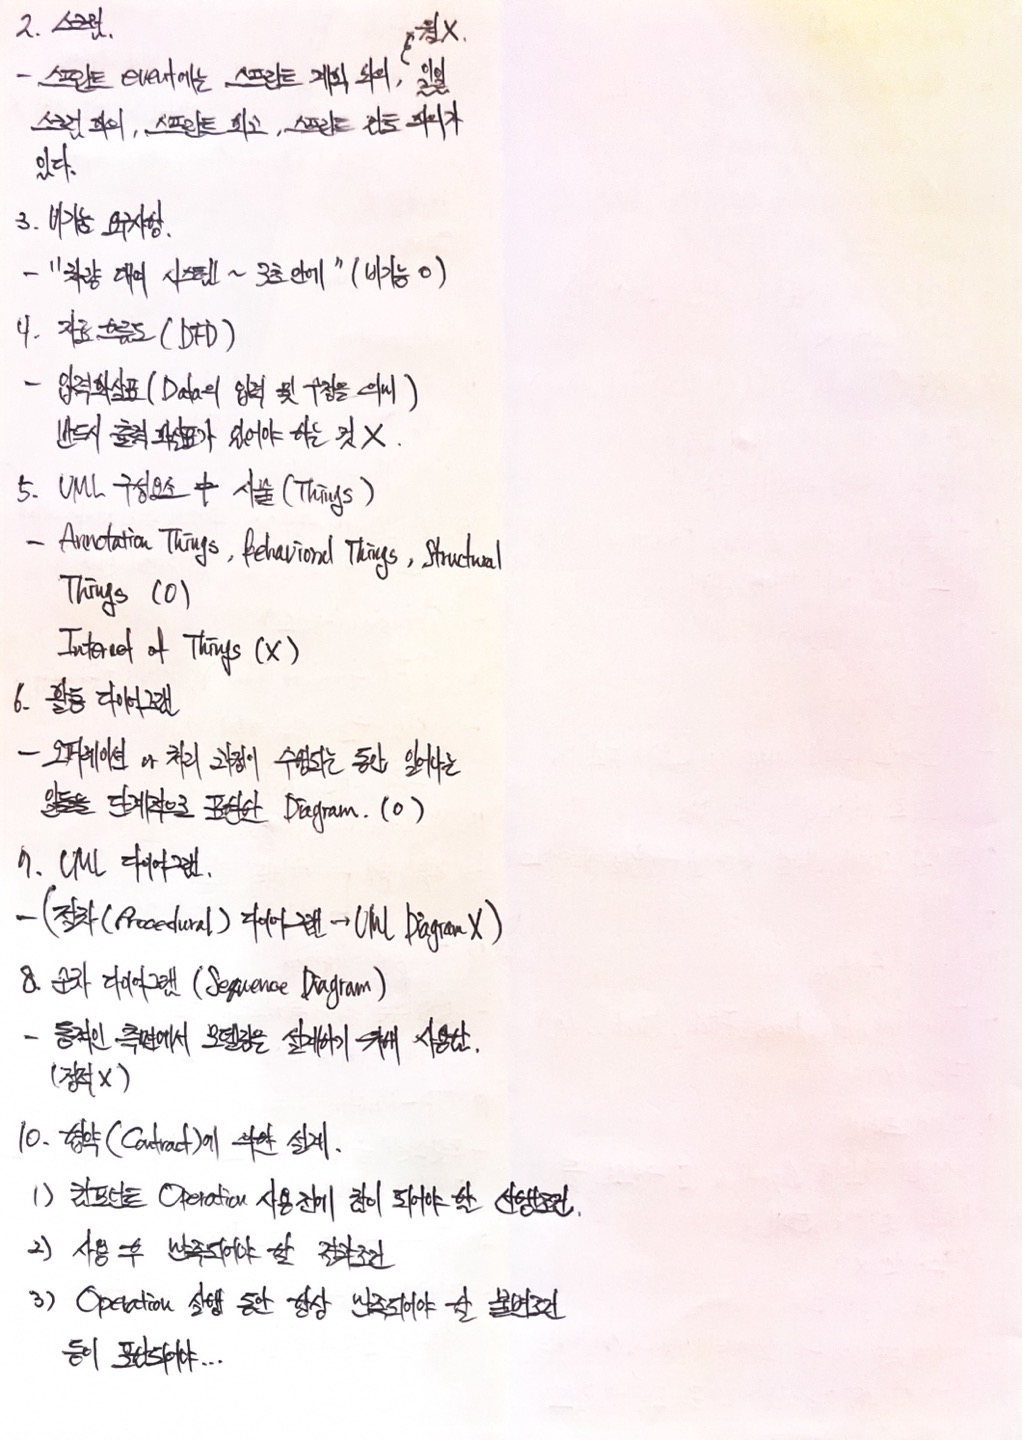 2. 스크럼.
월X.
- 스프린트 event에는 스프린트 계획 회의, 일일
스크럼 회의, 스프린트 회고, 스프린트 검토 회의가
있다.
3. 비기능 요구사항.
- "차량 대여 시스템 ~ 3초 안에" (비기능 O)
4. 자료 흐름도 (DFD)
- 입력화살표 (Data의 입력 및 수정을 의미)
반드시 출력 화살표가 있어야 하는 것 X.
5. UML 구성요소 中 사물 (Things)
- Annotation Things, Behavioral Things, Structural
Things (O)
Internet of Things (X)
6. 활동 다이어그램
- 오퍼레이션 or 처리 과정이 수행되는 동안 일어나는
일들을 단계적으로 표현한 Diagram. (O)
7. UML 다이어그램.
- (절차 (Procedural) 다이어그램 → UML Diagram X)
8. 순차 다이어그램 (Sequence Diagram)
- 동적인 측면에서 모델링을 설계하기 위해 사용한.
(정적 X)
10. 협약 (Contract)에 의한 설계.
1) 컴포넌트 Operation 사용 전에 참이 되어야 할 선행조건.
2) 사용 후 만족되어야 할 결과조건
3) Operation 실행 동안 항상 만족되어야 할 불변조건
등이 포함되어야...